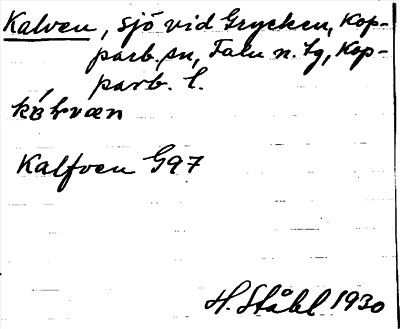 Kalven, sjö vid Grycken, Kop-
parb. sn, Falu n. tg, Kop-
parb. l.
Kalfven G97
H. Ståhl 1930